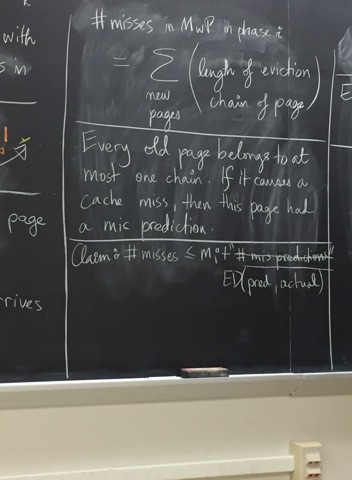 k
with
s in
page
rrives
# misses in MwP in phase i
= Σ (length of eviction
new pages chain of page)
Every old page belongs to at
most one chain. If it causes a
cache miss, then this page had
a mic prediction.
Claim: # misses ≤ mᵢ + "# mis predictions"
ED(pred, actual)
E